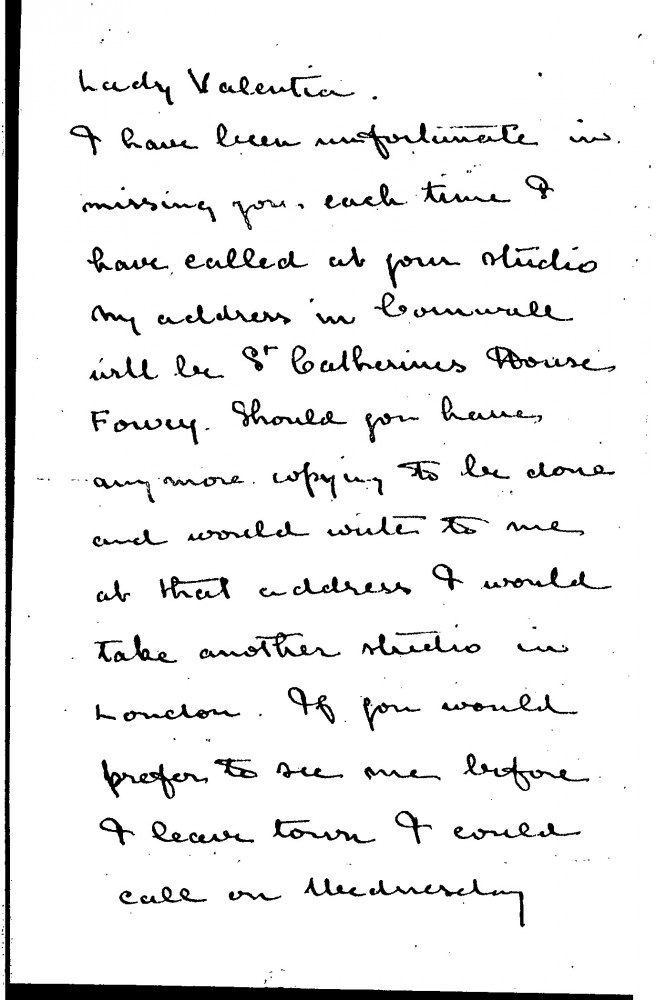 Lady Valentia.
I have been unfortunate in
missing you, each time I
have called at your studio
my address in Cornwall
will be St Catherines House
Fowey. Should you have
any more copying to be done
and would write to me
at that address I would
take another studio in
London. If you would
prefer to see me before
I leave town I could
call on Wednesday